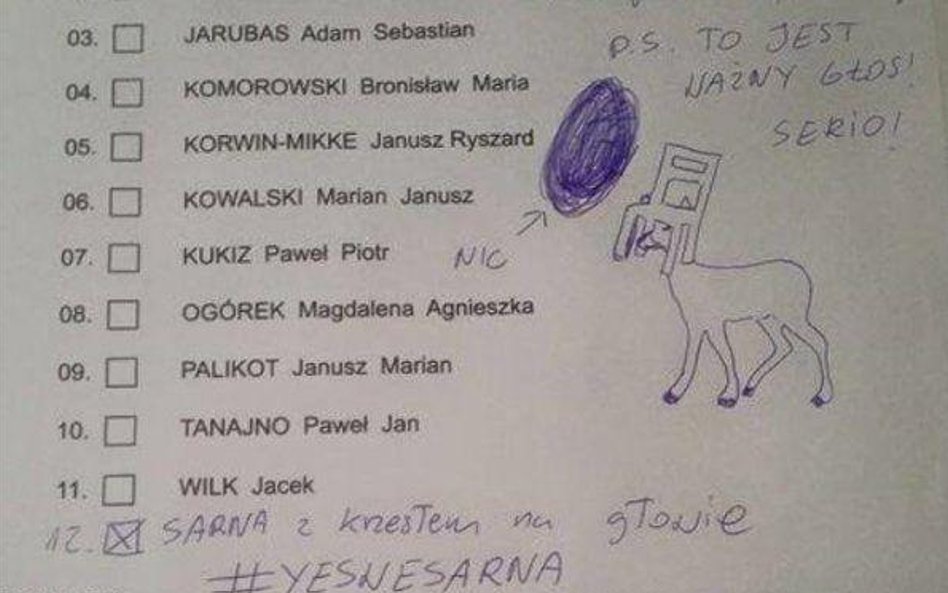 03. JARUBAS Adam Sebastian
P.S. TO JEST
WAŻNY GŁOS!
SERIO!
04. KOMOROWSKI Bronisław Maria
05. KORWIN-MIKKE Janusz Ryszard
06. KOWALSKI Marian Janusz
07. KUKIZ Paweł Piotr
NIC
08. OGÓREK Magdalena Agnieszka
09. PALIKOT Janusz Marian
10. TANAJNO Paweł Jan
11. WILK Jacek
12. SARNA z krzesłem na głowie
#YESNESARNA